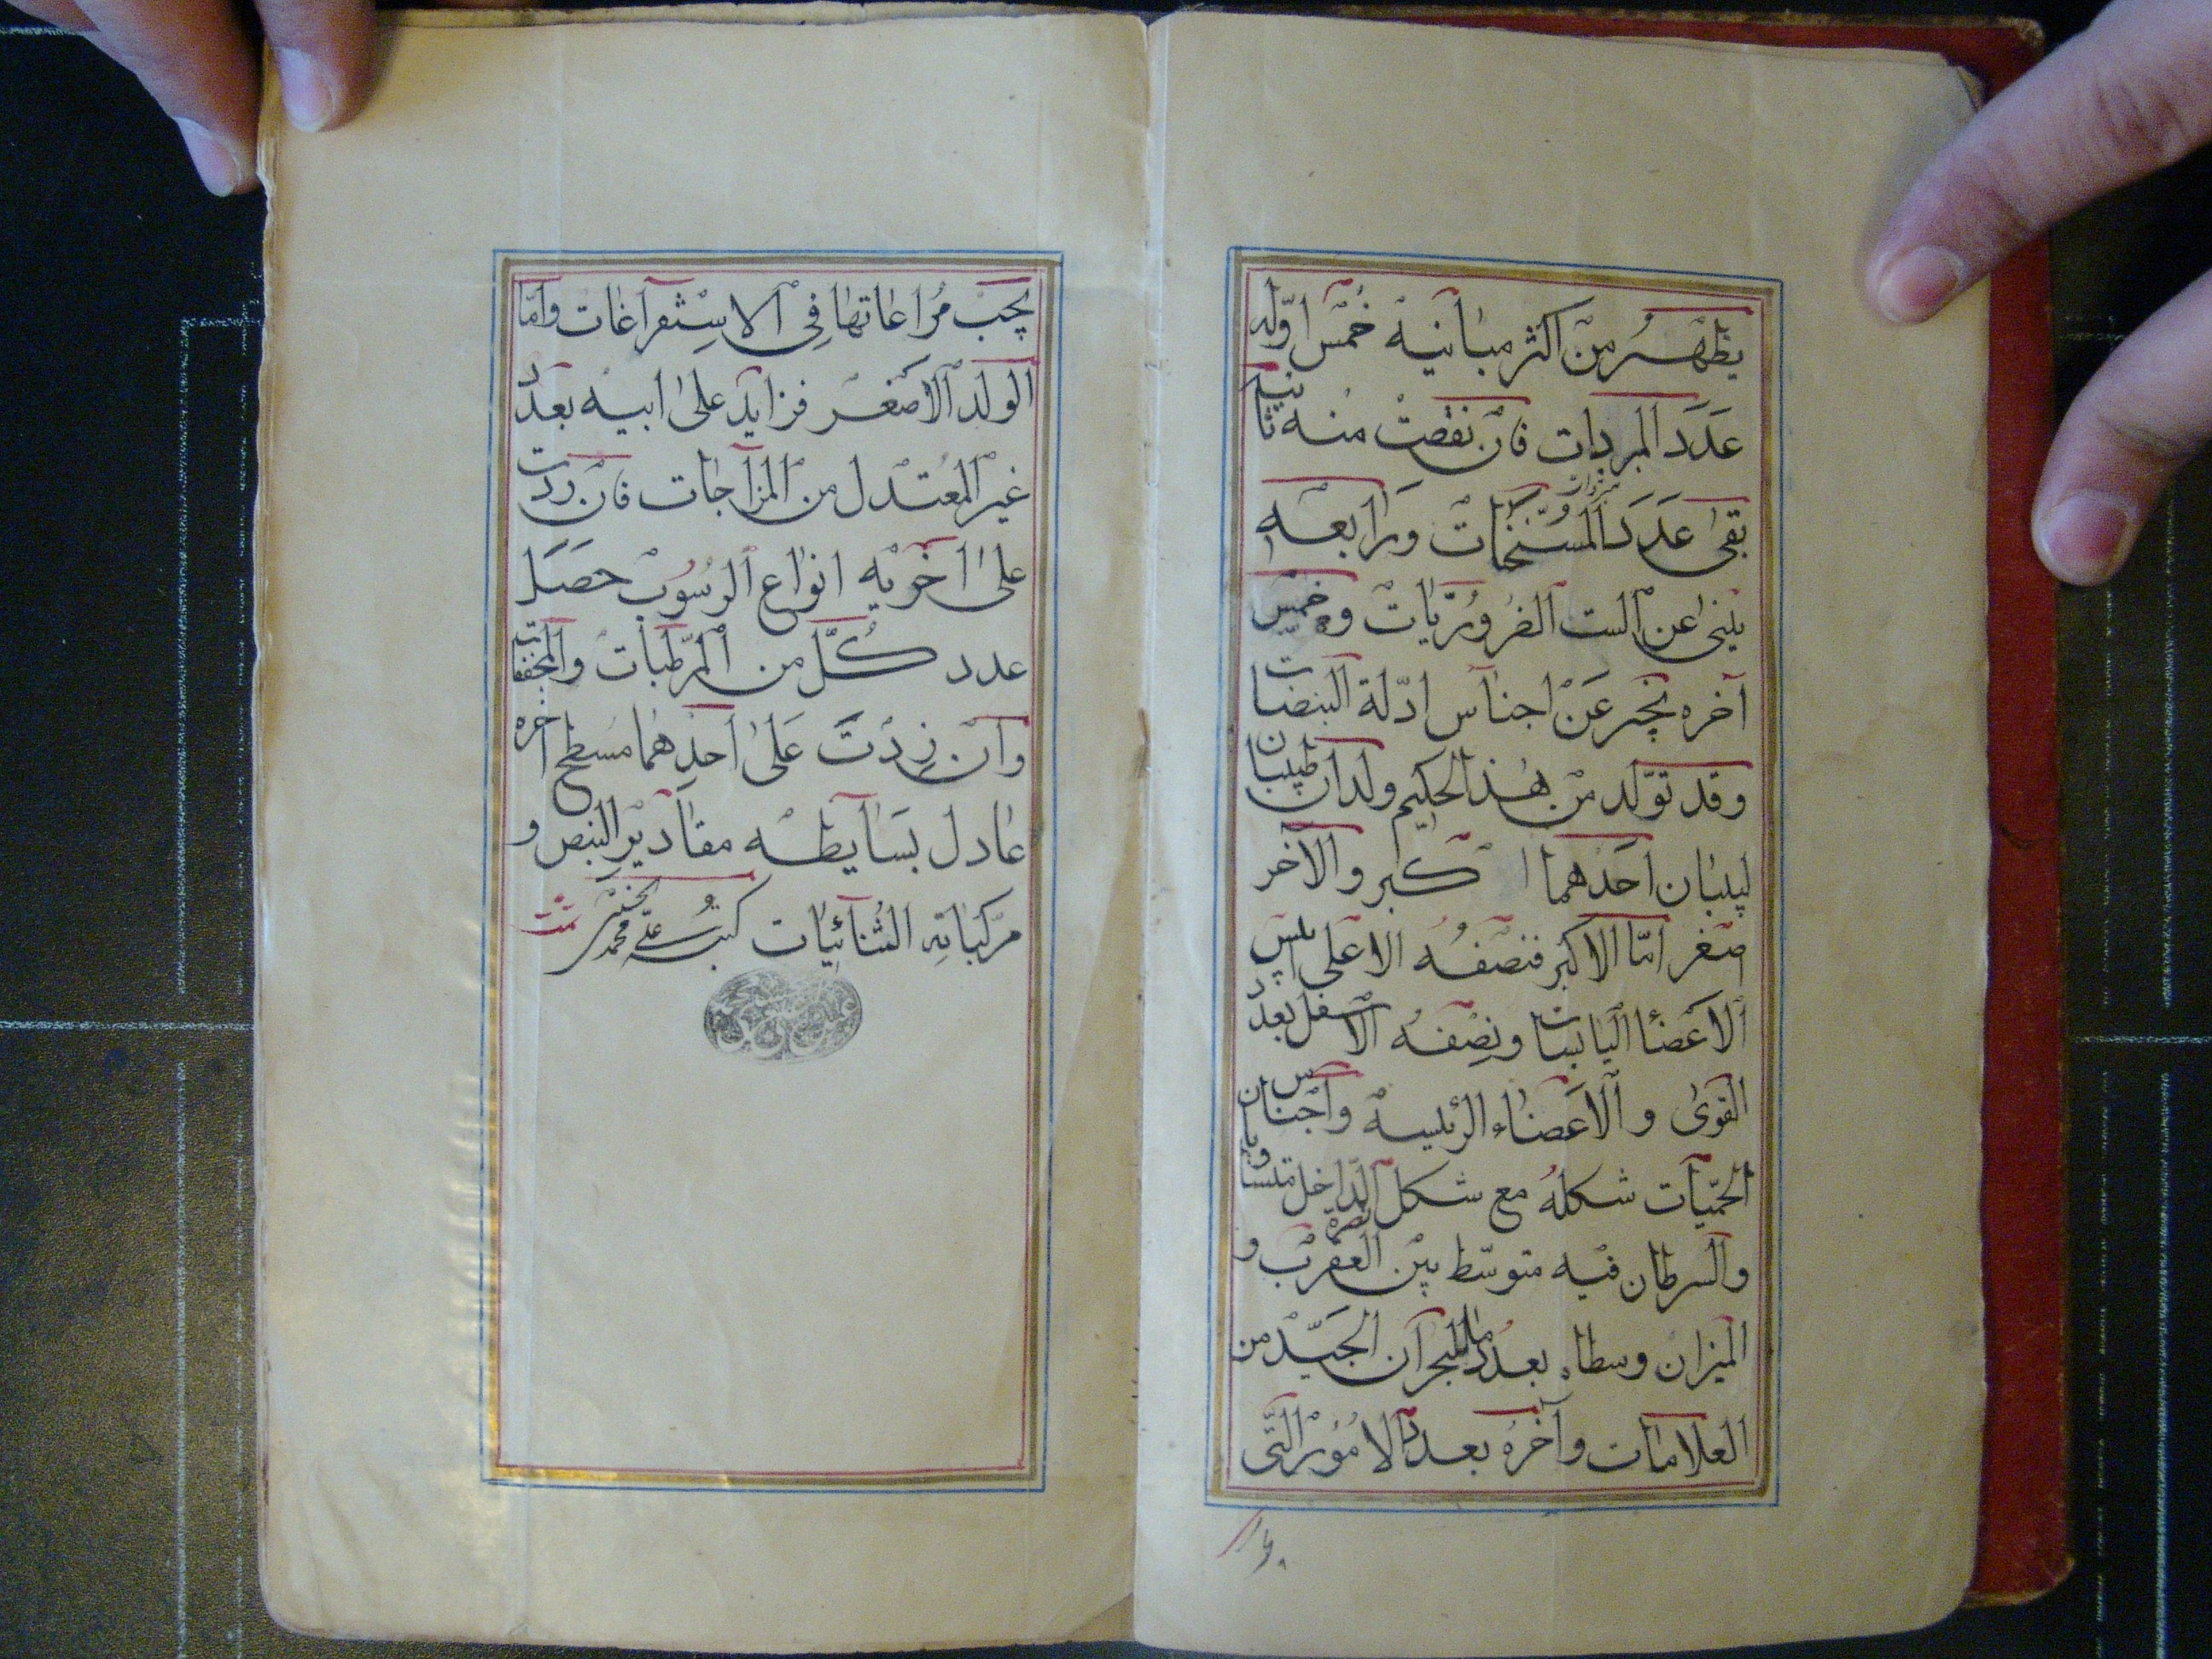 يظهر من اكثر مبانيه خمس اوله
عدد المبردات فان نقصت منه ثانيه
بقى عدد المسخنات ورابعه
ينبئ عن الست الضروريات وخمس
آخره يخبر عن اجناس ادلة النبضات
وقد تولد من هذا الحكيم ولدان طبيبان
لبيبان احدهما اكبر والآخر
اصغر امّا الاكبر فنصفه الاعلى
الاعضا اليابسات ونصفه الاسفل بعدد
القوى والاعضاء الرئيسه واجناس
الحميات شكله مع شكل الداخل متساويان
والسرطان فيه متوسط بين العقرب و
الميزان وسطاه بعدد ما للبحران الجيد من
العلامات وآخره بعدد الامور التى
يجب مراعاتها فى الاستفراغات وامّا
الولد الاصغر فزايد على ابيه بعدد
غير المعتدل من المزاجات فان زدت
على اخويه انواع الرسوب حصل
عدد كل من المرطبات والمجففات
وان زدت على احدهما مسطح آخره
عادل بسايطه مقادير النبض و
مركباته الثنائيات كتبه على محمد
تمت